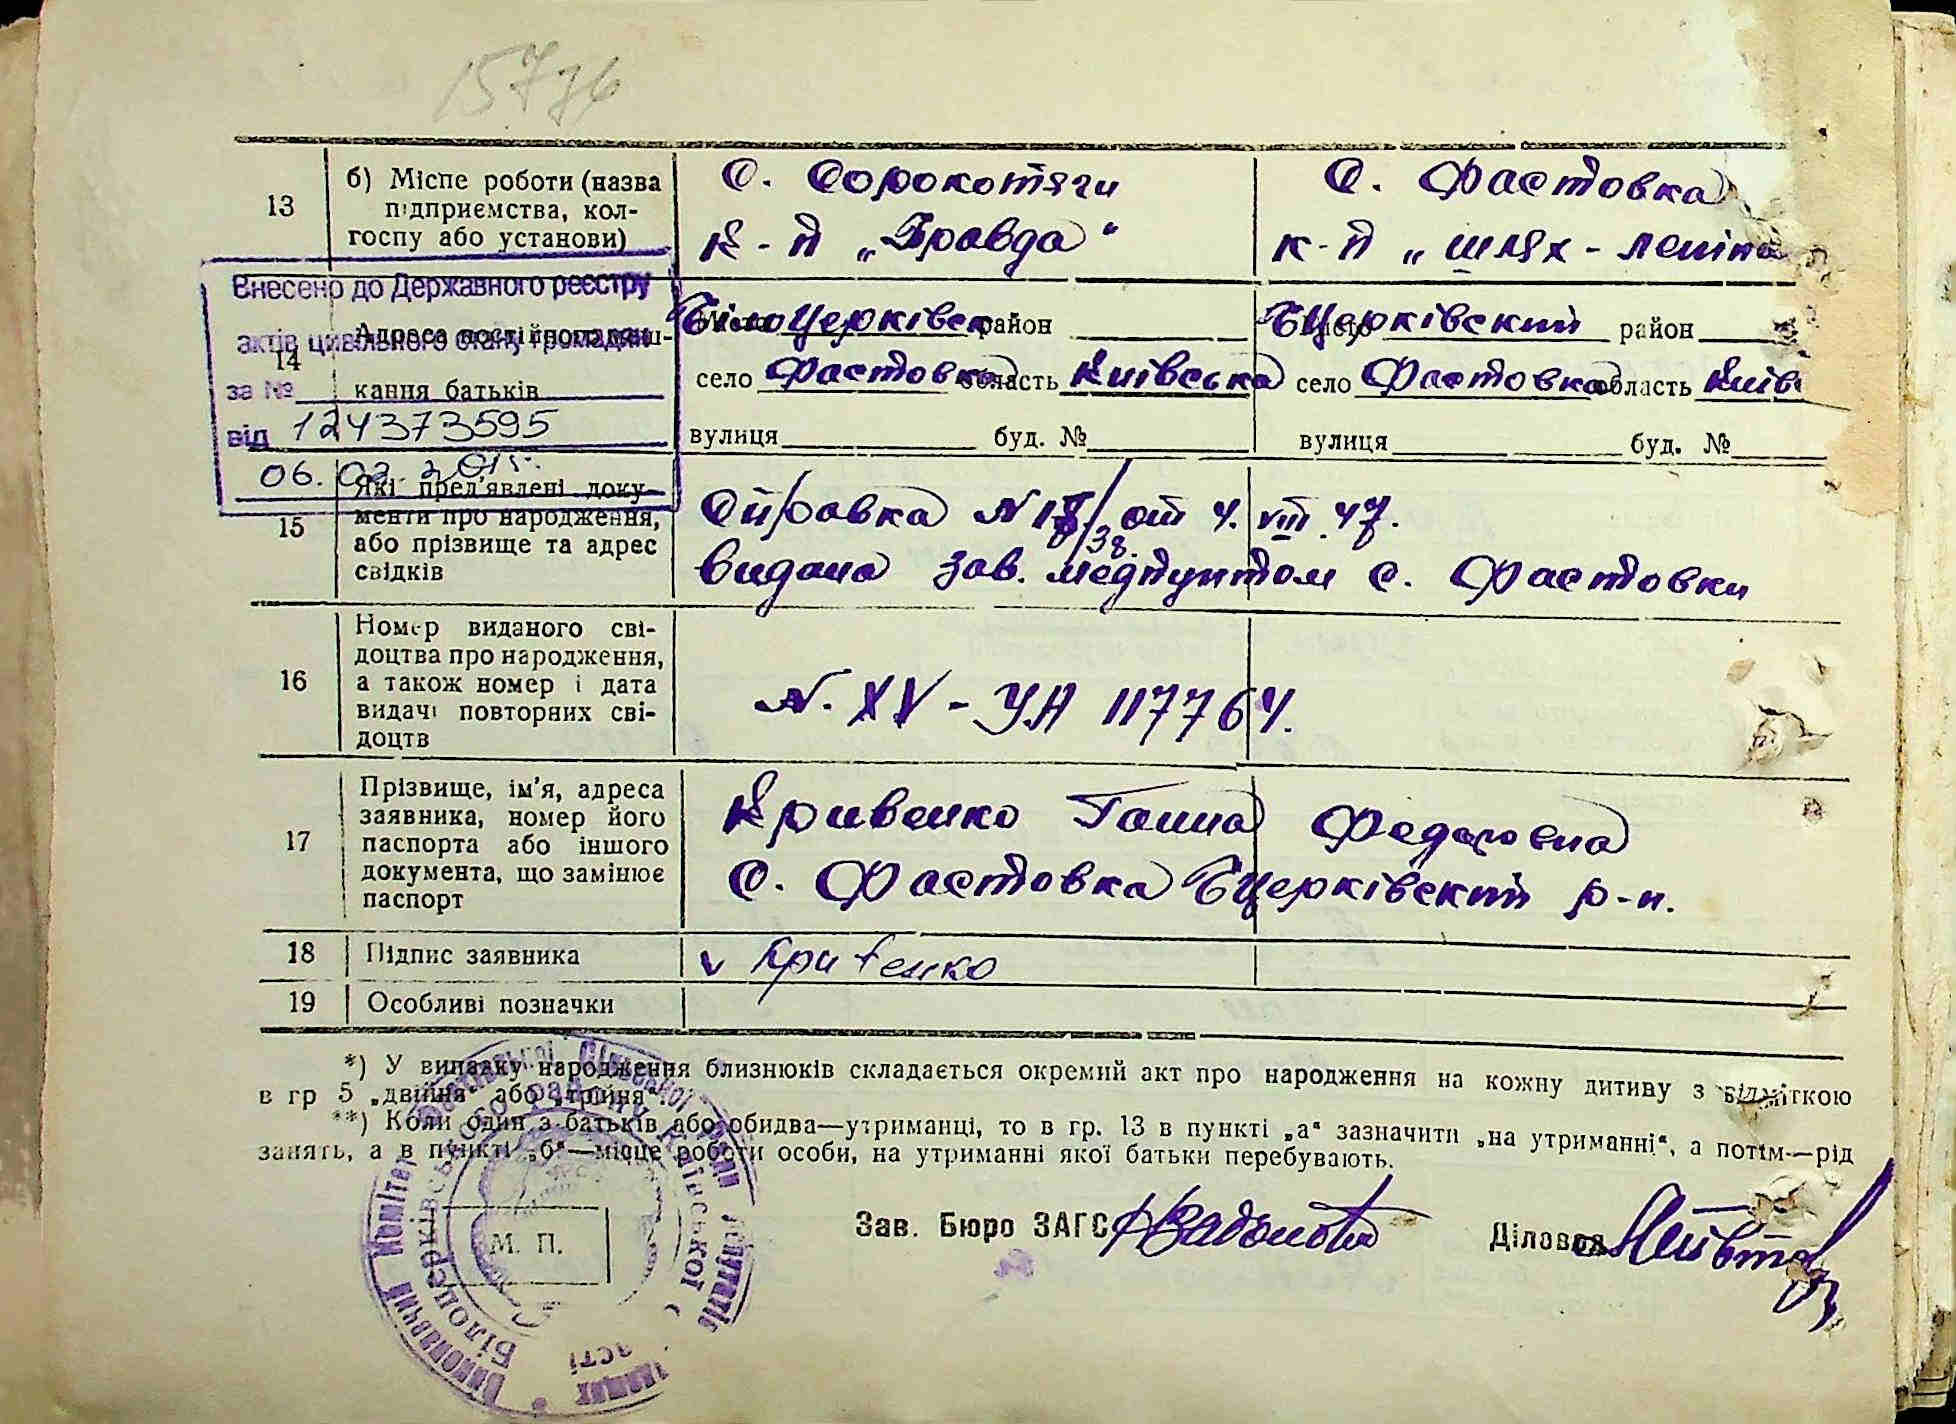 15776
13
б) Місце роботи (назва
підприємства, кол-
госпу або установи)
с. Сорокотяги
к-п „Правда“
с. Фастовка
к-п „шлях-леніна
Внесено до Державного реєстру
актів цивільного стану громадян
за №
від 124373595
06. 02. 2015.
14
Адреса постійного меш-
кання батьків
Місто Білоцерківск район
село Фастовка область Київська
вулиця буд. №
місто БЦерківский район
село Фастовка область Київ
вулиця буд. №
15
Які пред'явлені доку-
менти про народження,
або прізвище та адрес
свідків
Справка N /38. от 4. VIII. 47.
видана зав. медпунтом с. Фастовки
16
Номер виданого сві-
доцтва про народження,
а також номер і дата
видачі повторних сві-
доцтв
N. XV - УН 117764.
17
Прізвище, ім'я, адреса
заявника, номер його
паспорта або іншого
документа, що замінює
паспорт
Кривенко Ганна Федоровна
с. Фастовка БЦерківский р-н.
18 Підпис заявника
v Кривенко
19 Особливі позначки
*) У випадку народження близнюків складається окремий акт про народження на кожну дитину з відміткою
в гр 5 „двійня“ або „трійня“.
**) Коли один з батьків або обидва—утриманці, то в гр. 13 в пункті „а“ зазначити „на утриманні“, а потім—рід
занять, а в пункті „б“—місце роботи особи, на утриманні якої батьки перебувають.
Виконавчий Комітет Сільської Ради депутатів
Білоцерківського району Київської
М. П.
Зав. Бюро ЗАГС
Діловод